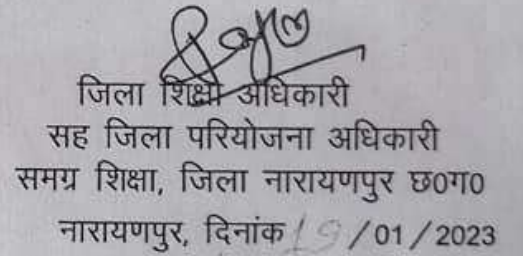 जिला शिक्षा अधिकारी
सह जिला परियोजना अधिकारी
समग्र शिक्षा, जिला नारायणपुर छ0ग0
नारायणपुर, दिनांक 19/01/2023